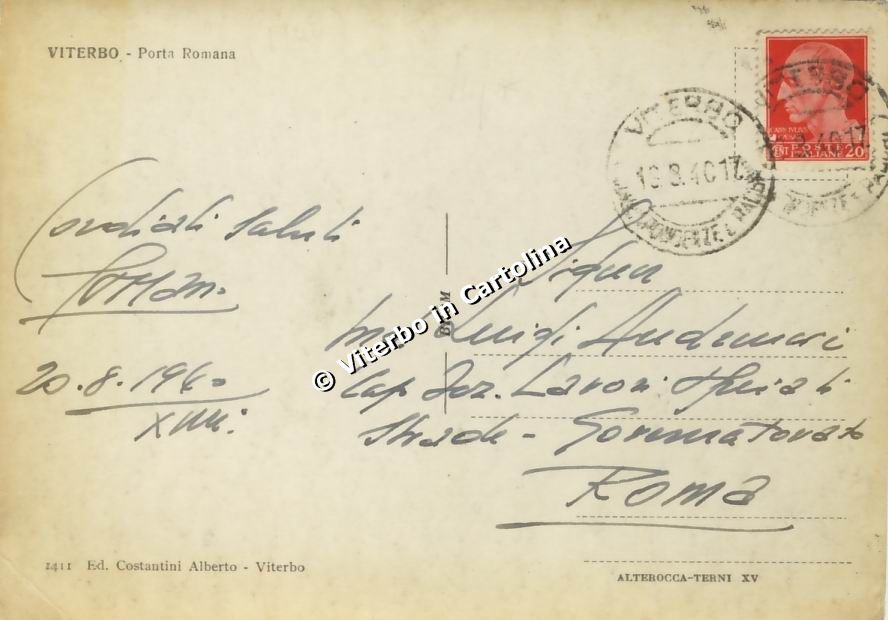 VITERBO - Porta Romana
VITERBO
18.8.40 17
CORRISPONDENZE E PACCHI
POSTE
ITALIANE
CENT 20
Cordiali saluti
20.8.1940
XVIII.
BREM
© Viterbo in Cartolina
Signor
Ing. Luigi
Cap. Sez. Lavori
Strade - Governatorato
Roma
1411 Ed. Costantini Alberto - Viterbo
ALTEROCCA-TERNI XV